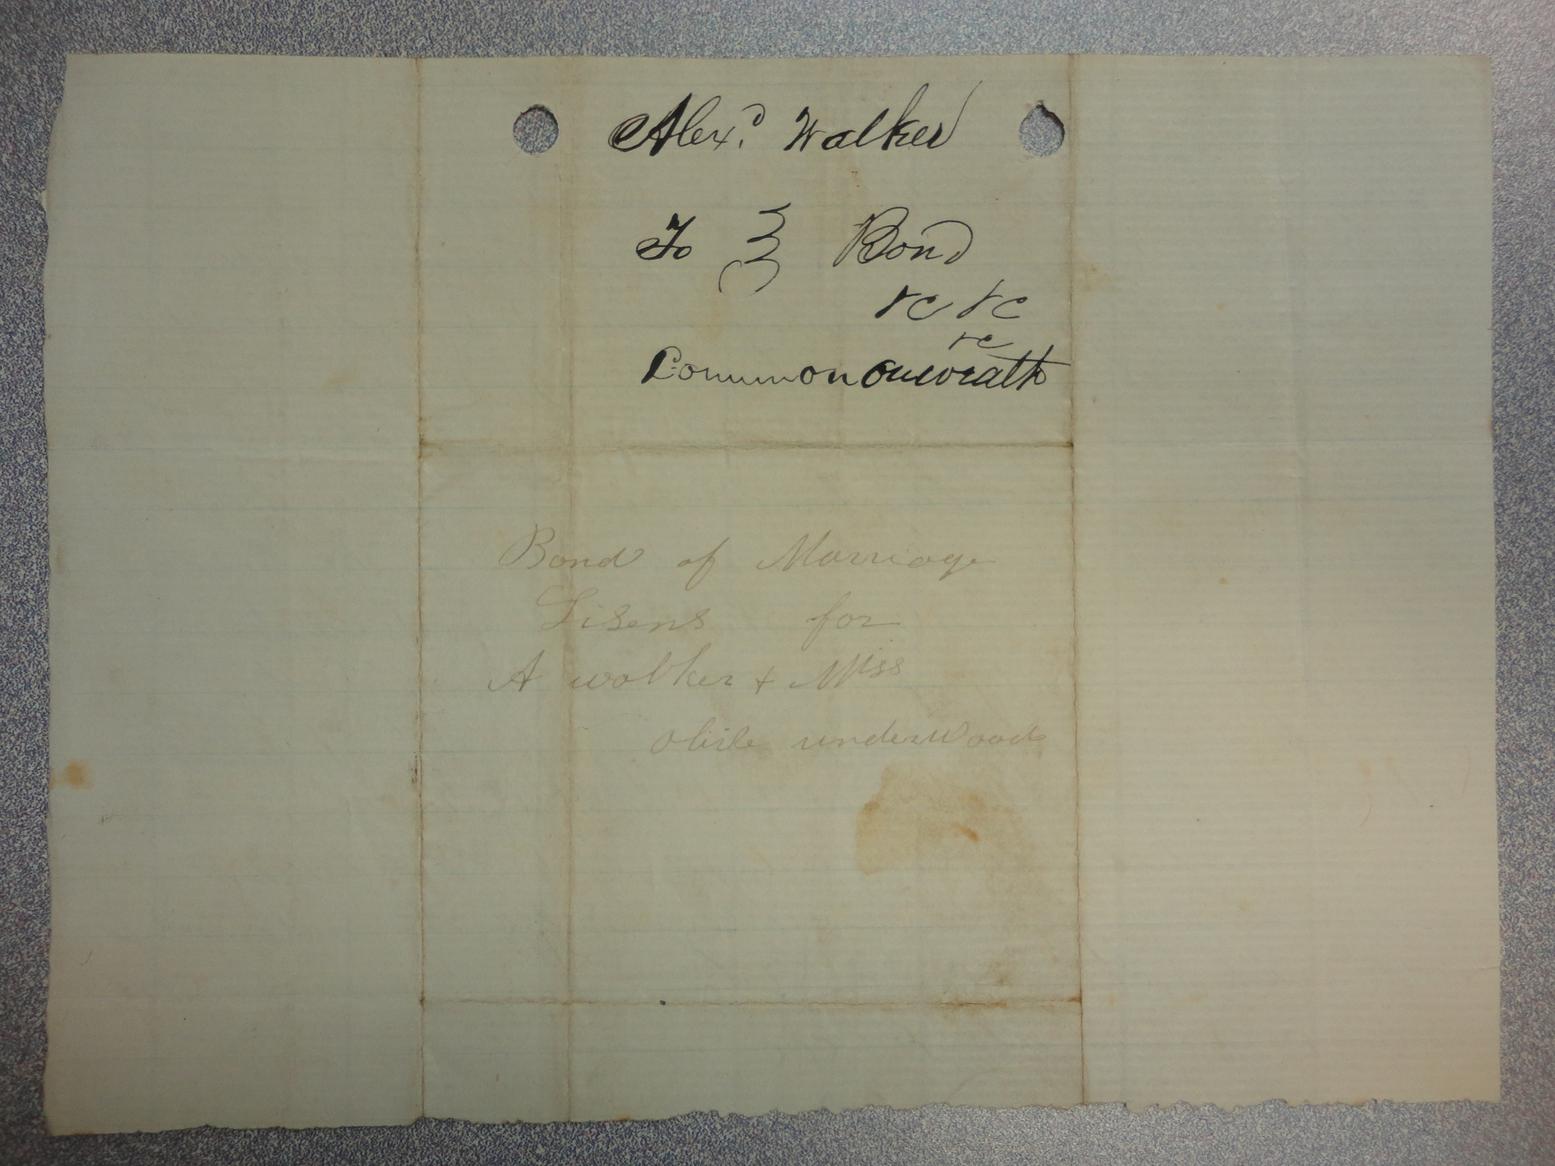 Alex.d Walker
To } Bond
&c &c
&c
Commononwealth
Bond of Marriage
Lisens for
A walker & Miss
underwood